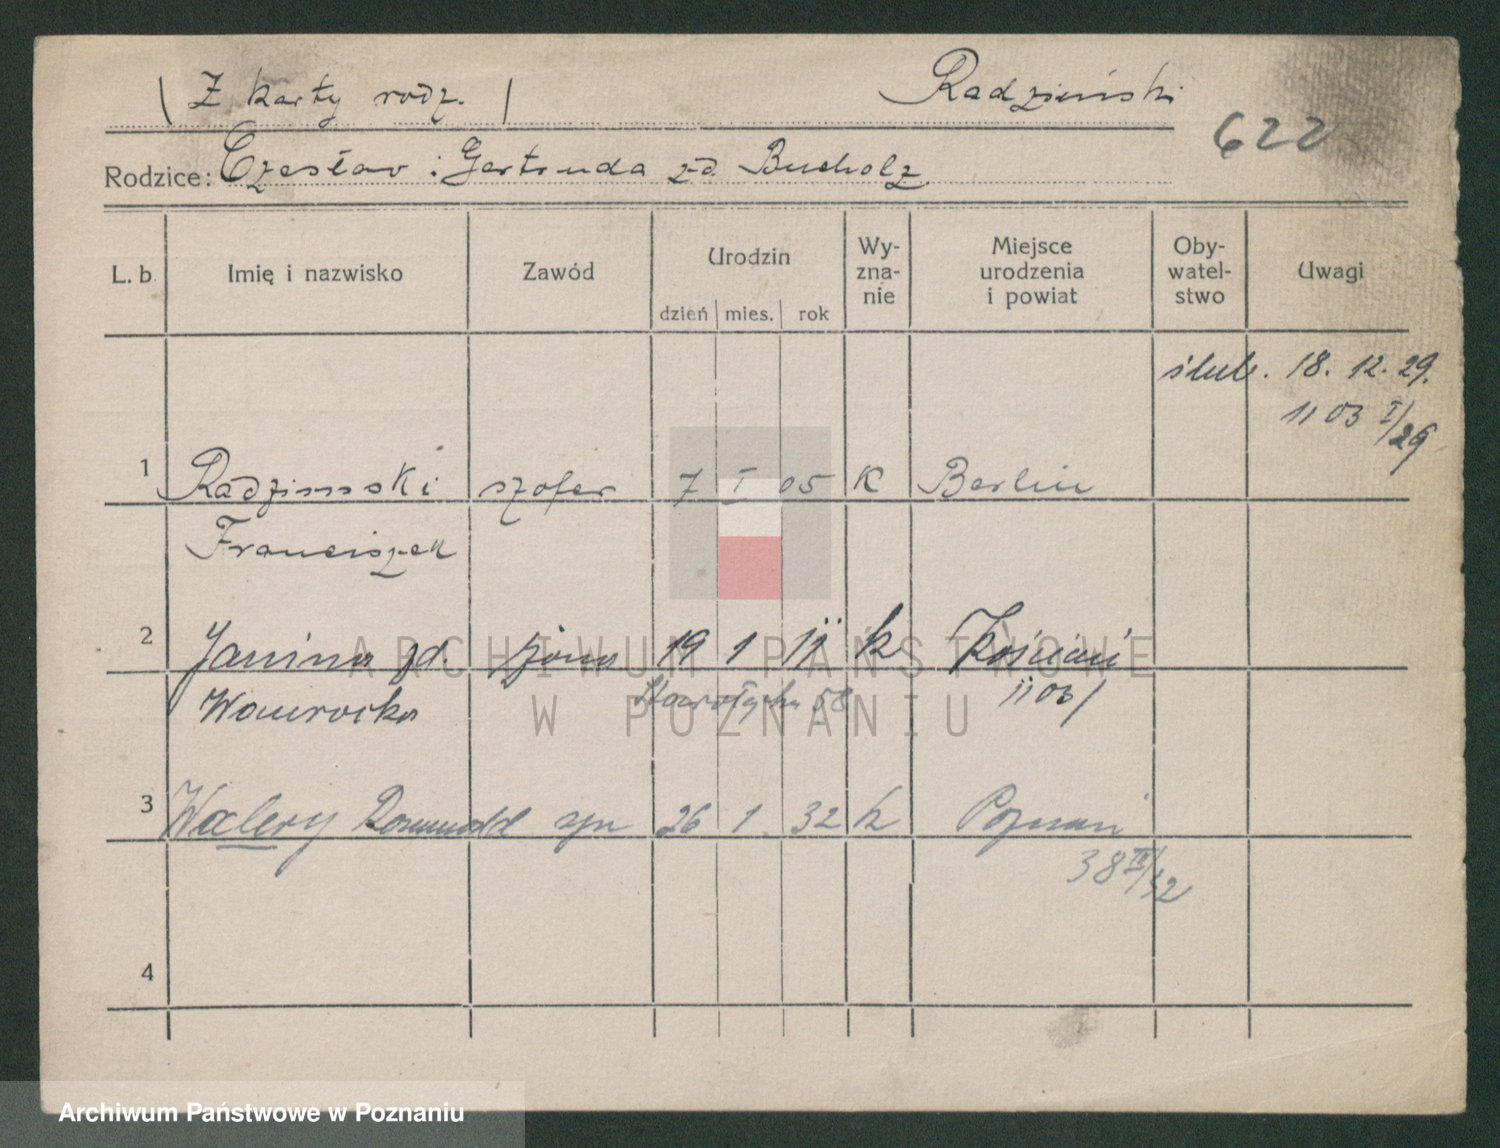 Z karty rodz.
Radzimski
622
Rodzice: Czesław i Gertruda zd. Bucholz
L. b.
Imię i nazwisko
Zawód
Urodzin
dzień mies. rok
Wy-
zna-
nie
Miejsce
urodzenia
i powiat
Oby-
watel-
stwo
Uwagi
ślub. 18. 12. 29.
1103 I/29
1 Radzimski szofer 7 I 05 K Berlin
Franciszek
2 Janina zd. żona 19 1 11 k Kościan
Wawrocka 58 1103/
3 Walery Romuald syn 26 1 32 k Poznań
38 III/32
4
ARCHIWUM PAŃSTWOWE
W POZNANIU
Archiwum Państwowe w Poznaniu